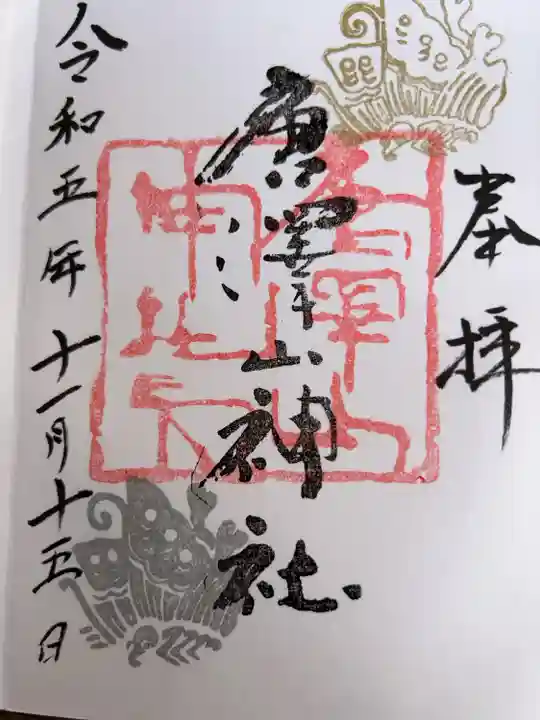 奉拝
唐澤山神社
令和五年十一月十五日